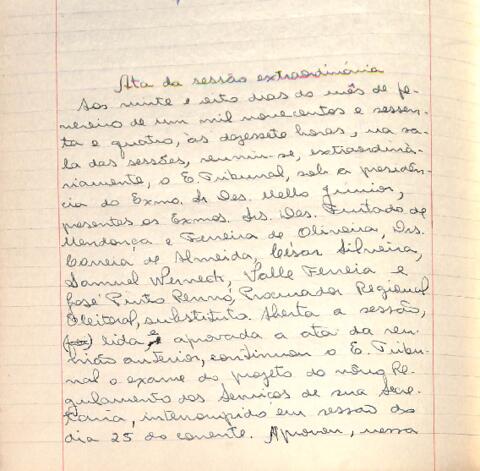 Ata da sessão extraordinária
Aos vinte e oito dias do mês de fe-
vereiro de um mil novecentos e sessen-
ta e quatro, às dezessete horas, na sa-
la das sessões, reuniu-se, extraordinà-
riamente, o E. Tribunal, sob a presidên-
cia do Exmo. Sr. Des. Mello Junior,
presentes os Exmos. Srs. Des. Furtado de
Mendonça e Ferreira de Oliveira, Drs.
Correia de Almeida, César Silveira,
Samuel Werneck, Valle Ferreira e
José Pinto Renno, Procurador Regional
Eleitoral, substituto. Aberta a sessão,
lida e aprovada a ata da reu-
nião anterior, continuou o E. Tribu-
nal o exame do projeto do nôvo Re-
gulamento dos Serviços de sua Secre-
taria, interrompido em sessão do
dia 25 do corrente. Aprovou, nessa